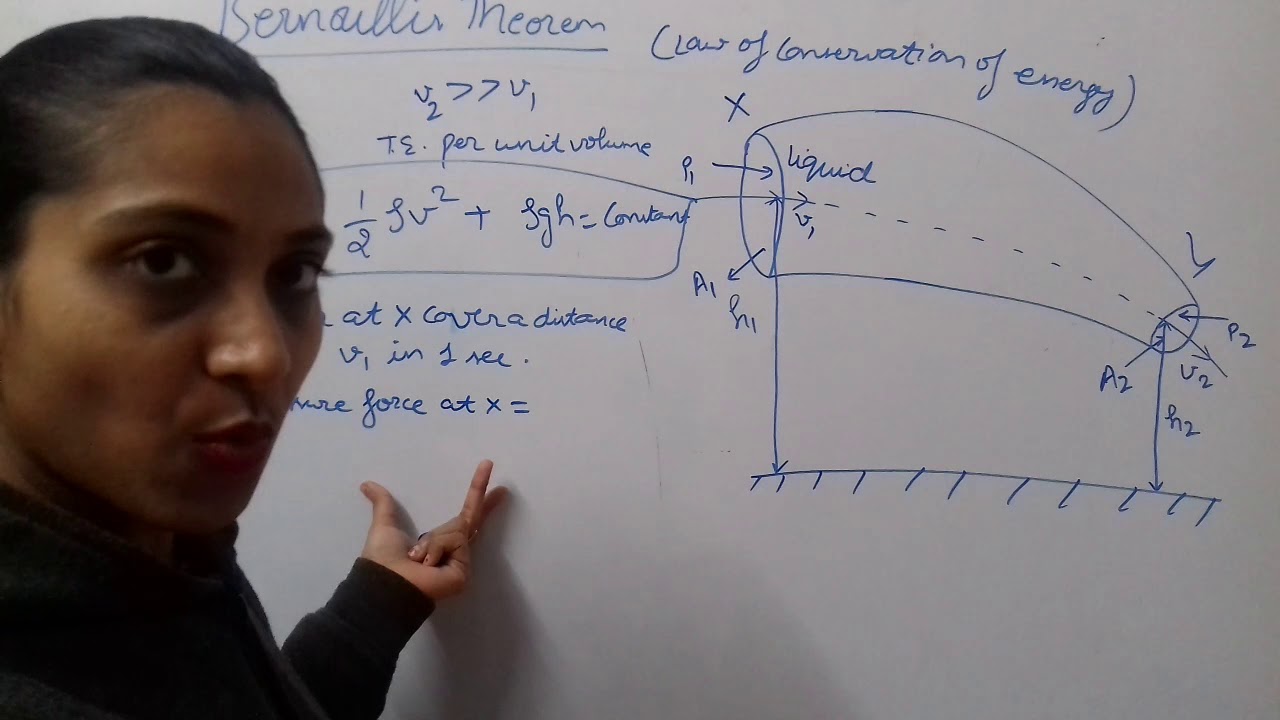 Bernoullis Theorem
(Law of Conservation of energy)
v₂ >> v₁
T.E. per unit volume
1/2 ρv² + ρgh = Constant
at X cover a distance
v₁ in 1 sec.
force at X =
X
P₁
liquid
v₁
A₁
h₁
Y
P₂
A₂
v₂
h₂